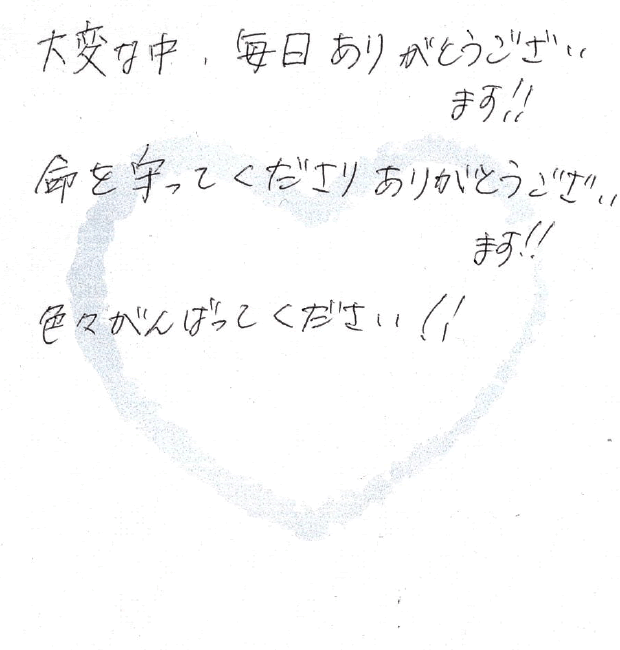 大変な中、毎日ありがとうござい
ます!!
命を守ってくださりありがとうござい
ます!!
色々がんばってください!!